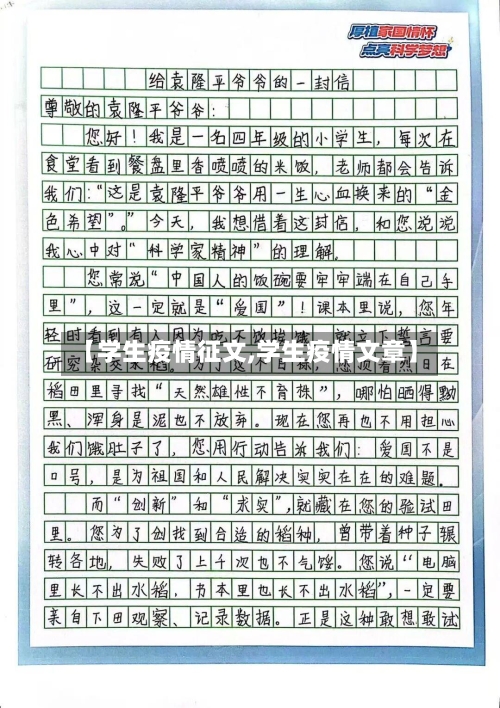 厚植家国情怀
点亮科学梦想
给袁隆平爷爷的一封信
尊敬的袁隆平爷爷：
您好！我是一名四年级的小学生，每次在
食堂看到餐盘里香喷喷的米饭，老师都会告诉
我们：“这是袁隆平爷爷用一生心血换来的“金
色希望”。”今天，我想借着这封信，和您说说
我心中对“科学家精神”的理解。
您常说“中国人的饭碗要牢牢端在自己手
里”，这一定就是“爱国”！课本里说，您年
轻时看到有人因为吃不饱挨饿，就立下誓言要
【学生疫情征文,学生疫情文章】
研究杂交水稻。为了这个目标，您顶着烈日在
稻田里寻找“天然雄性不育株”，哪怕晒得黝
黑、浑身是泥也不放弃。现在您再也不用担心
我们饿肚子了，您用行动告诉我们：爱国不是
口号，是为祖国和人民解决实实在在的难题。
而“创新”和“求实”，就藏在您的验试田
里。您为了创找到合造的稻种，曾带着种子辗
转各地，失败了上千次也不气馁。您说“电脑
里长不出水稻，书本里也长不出水稻”，一定要
亲自下田观察、记录数据。正是这种敢想敢试